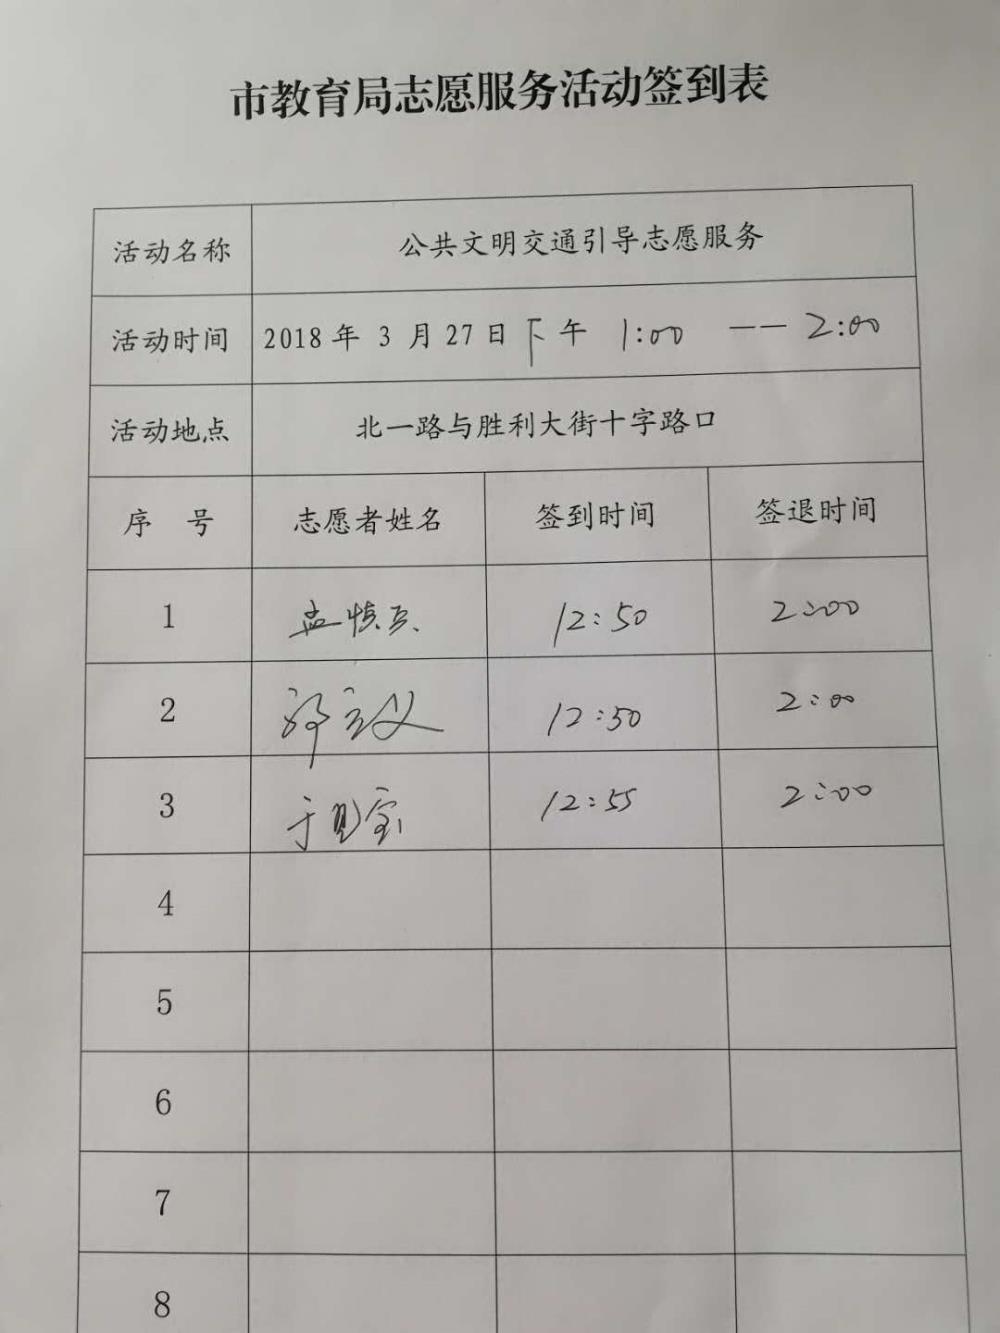 市教育局志愿服务活动签到表
活动名称 公共文明交通引导志愿服务
活动时间 2018 年 3 月 27 日 下 午 1:00 —— 2:00
活动地点 北一路与胜利大街十字路口
序 号 志愿者姓名 签到时间 签退时间
1 12:50 2:00
2 12:50 2:00
3 于 宝 12:55 2:00
4
5
6
7
8